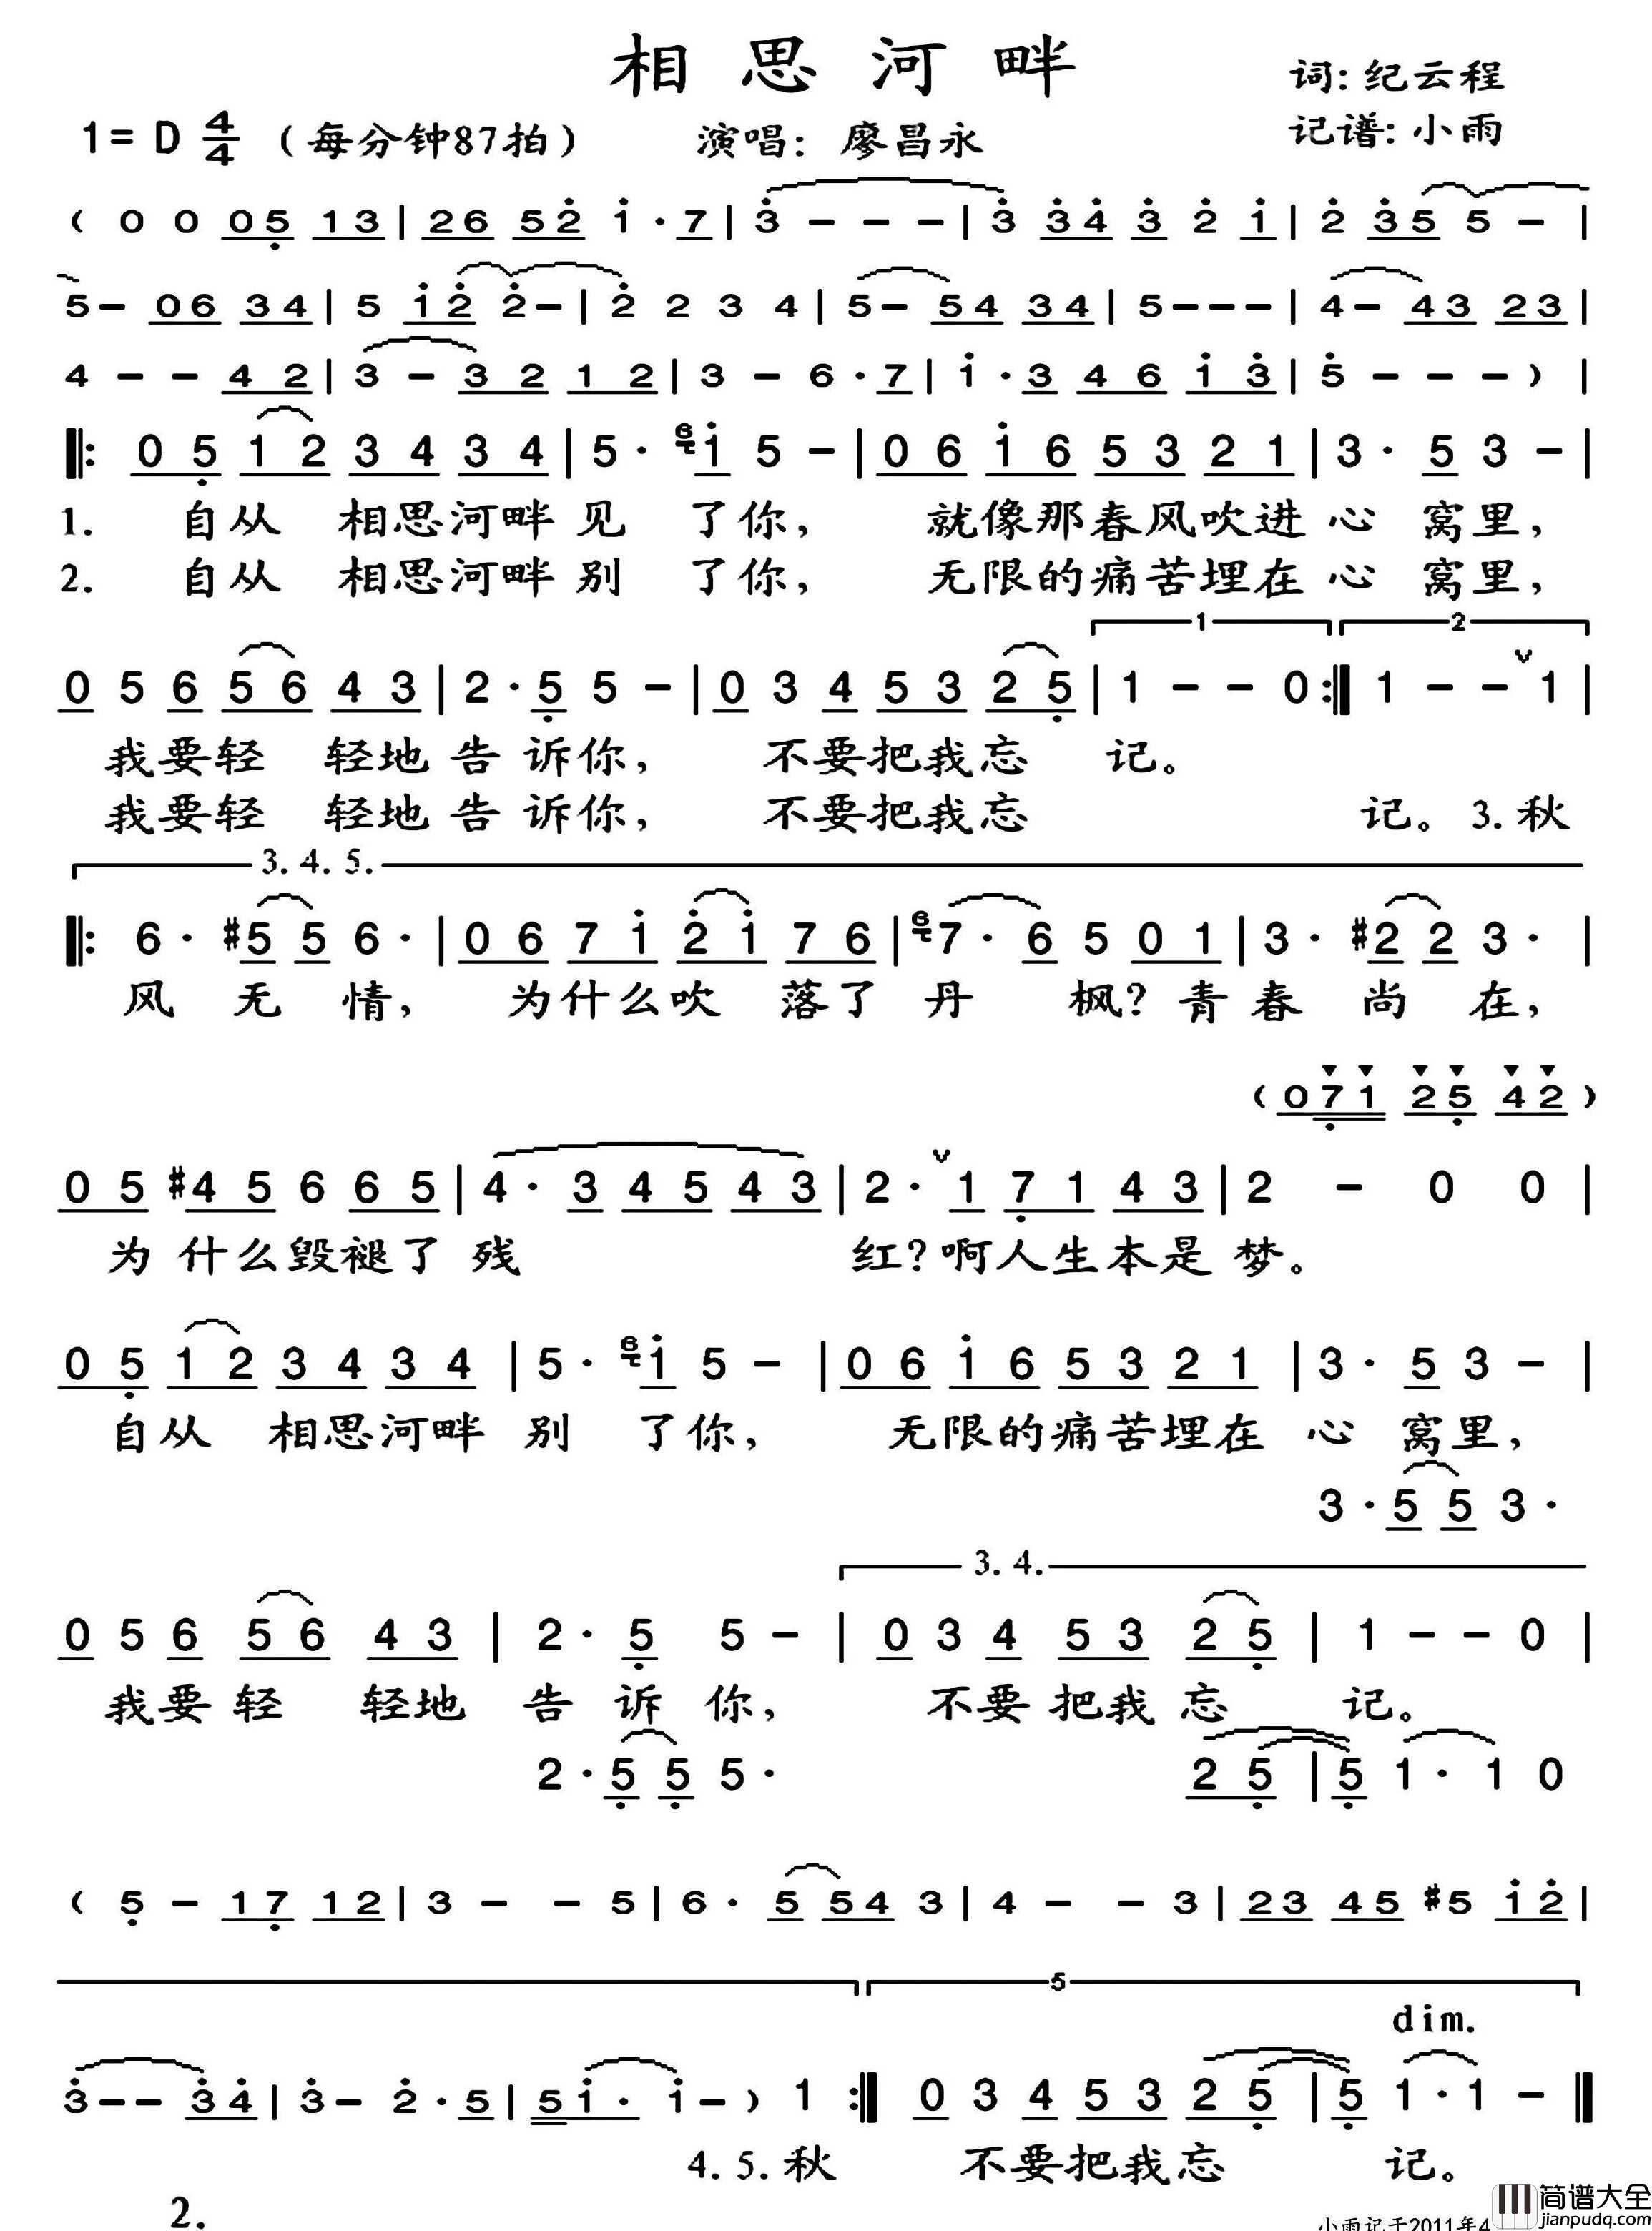 相思河畔
词: 纪云程
1= D 4/4 (每分钟87拍) 演唱: 廖昌永
记谱: 小雨
( 0 0 05 13 | 26 52 1 · 7 | 3 – – – | 3 34 3 2 1 | 2 35 5 – |
5 – 06 34 | 5 12 2 – | 2 2 3 4 | 5 – 54 34 | 5 – – – | 4 – 43 23 |
4 – – 42 | 3 – 32 12 | 3 – 6 · 7 | 1 · 3 46 13 | 5 – – – ) |
‖: 05 12 34 34 | 5 · 6 1 5 – | 06 16 53 21 | 3 · 5 3 – |
1. 自从 相思河畔见 了你, 就像那春风吹进心 窝里,
2. 自从 相思河畔别 了你, 无限的痛苦埋在心 窝里,
1 2
0 5 6 56 43 | 2 · 5 5 – | 0 3 4 53 25 | 1 – – 0 :‖ 1 – – ∨ 1 |
我要轻 轻地告诉你, 不要把我忘 记。
我要轻 轻地告诉你, 不要把我忘 记。3.秋
3. 4. 5.
‖: 6 · #5 5 6 · | 06 71 21 76 | 6 7 · 6 5 01 | 3 · #2 2 3 · |
风 无 情, 为什么吹 落了丹 枫?青春 尚 在,
( 071 25 42 )
05 #45 6 65 | 4 · 3 45 43 | 2 · ∨ 1 71 43 | 2 – 0 0 |
为 什么毁褪了残 红?啊人生本是梦。
05 12 34 34 | 5 · 6 1 5 – | 06 16 53 21 | 3 · 5 3 – |
自从 相思河畔 别 了你, 无限的痛苦埋在 心 窝里,
3 · 5 5 3 ·
3. 4.
0 5 6 56 43 | 2 · 5 5 – | 0 3 4 53 25 | 1 – – 0 |
我要轻 轻地 告 诉 你, 不要把我忘 记。
2 · 5 5 5 · 25 | 5 1 · 1 0
( 5 – 17 12 | 3 – – 5 | 6 · 5 54 3 | 4 – – 3 | 23 45 #5 12 |
5
dim.
3 – – 34 | 3 – 2 · 5 | 51 · 1 – ) 1 :‖ 0 3 4 53 25 | 5 1 · 1 – ‖
4. 5. 秋 不要把我忘 记。
2.
小雨记于2011年4
简谱大全
jianpudq.com